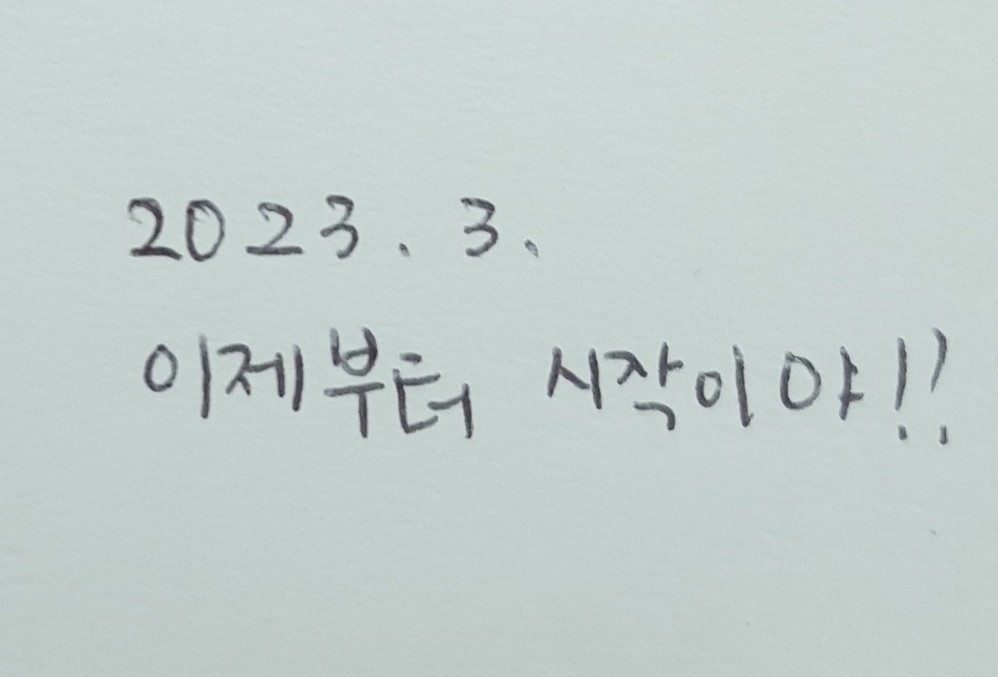 2023. 3.
이제부터 시작이야!!